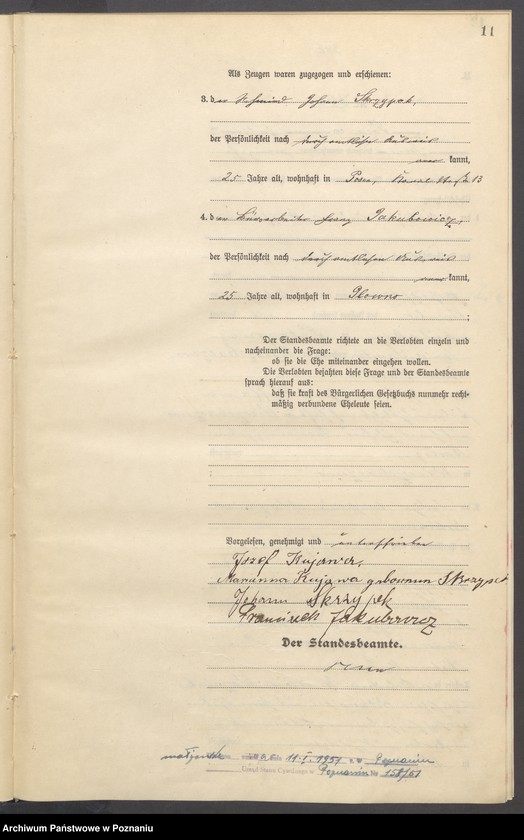 11
Als Zeugen waren zugezogen und erschienen:
3. der Schmied Johann Skrzypek,
der Persönlichkeit nach durch amtlichen Ausweis
kannt,
25 Jahre alt, wohnhaft in Posen, 13
4. der Büroarbeiter Franz Jakubowicz,
der Persönlichkeit nach durch amtlichen Ausweis
kannt,
25 Jahre alt, wohnhaft in Glowno
;
Der Standesbeamte richtete an die Verlobten einzeln und
nacheinander die Frage:
ob sie die Ehe miteinander eingehen wollen.
Die Verlobten bejahten diese Frage und der Standesbeamte
sprach hierauf aus:
daß sie kraft des Bürgerlichen Gesetzbuchs nunmehr recht-
mäßig verbundene Eheleute seien.
Vorgelesen, genehmigt und unterschrieben
Jozef Kujawa,
Marianna Kujawa geborenen Skrzypek
Johann Skrzypek
Franciszek Jakubowicz
Der Standesbeamte.
11.I.1951 Poznaniu
Urząd Stanu Cywilnego w Poznaniu Nr
Archiwum Państwowe w Poznaniu